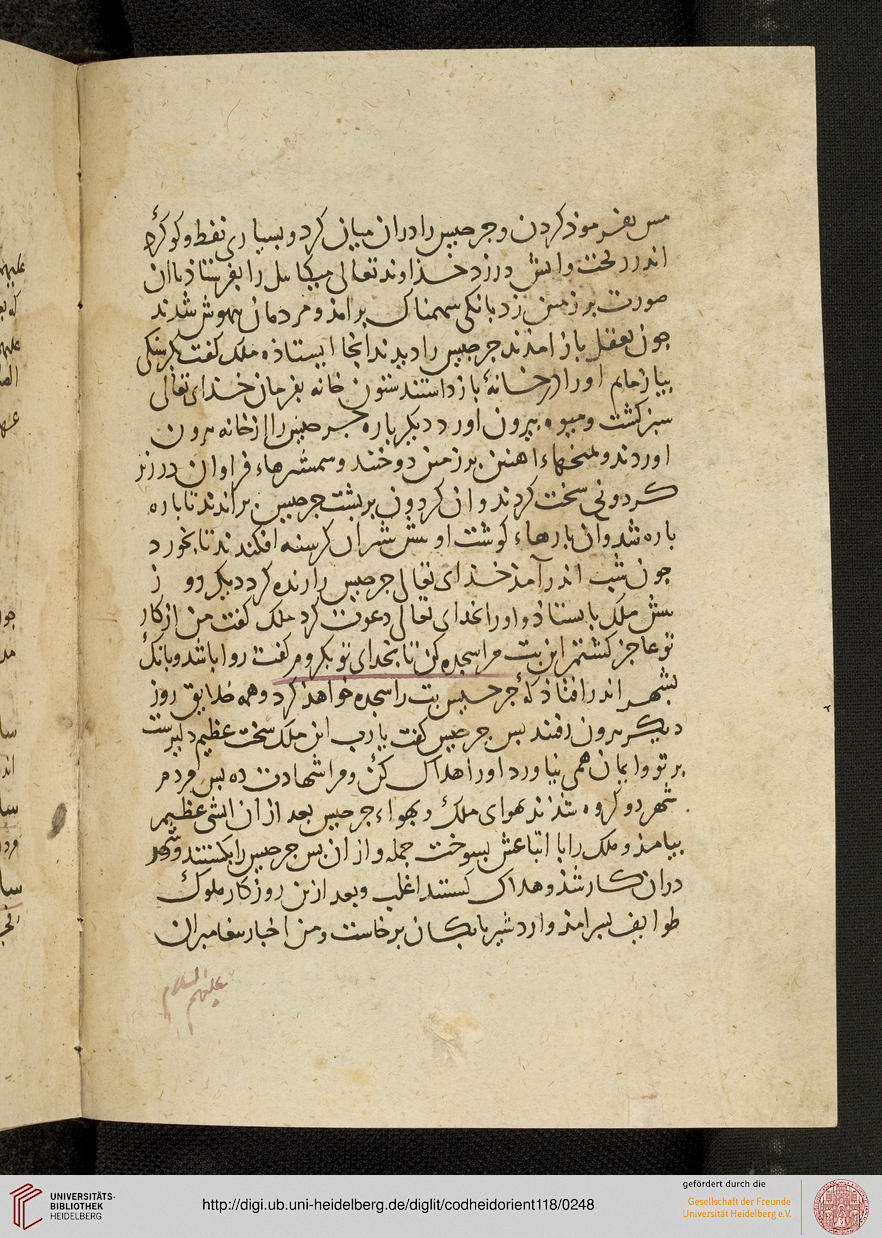 مس بفرموذ کردن و جرجیس را دران میان کرد و بسیاری نفط و کوکرد
اندر ریخت واتش در زد خذاوند تعالی میکاییل را بفرستاذ تا ان
صورت بر زمین زد بانکی سهمناک برامذ و مردمان بیهوش شدند
جون بعقل باز امذند جرجیس را دیدند انجا ایستاذه ملک کفت بکرسنکی
بیازمایم اورا در خانهٔ باز داشتند ستون خانه بفرمان خذای تعالی
سبز کشت و میوه بیرون اورد دیکر باره جرجیس را از خانه بیرون
اوردند و میخهاء اهنین بر زمین دوختند و شمشیرهاء فراوان در زیر
کردونی سخت کردند و ان کردون بر بشت جرجیس براندند تا باره
باره شد وان بارهاء کوشت او بیش شیران کرسنه افکندند تا بخورد
جون شب اندر آمذ خذای تعالی جرجیس را زنده کرد دیکر روز
بیش ملک بایستاذ و اورا بخدای تعالی دعوت کرد ملک کفت من از کار
تو عاجز کشتم این بت مرا سجده کن تا بخدای تو بکروم کفت روا باشد و بانک
بشهر اندر افتاذ که جرجیس بت را سجده خواهذ کرد و همه خلایق روز
دیکر بیرون رفتند بس جرجیس کفت یا رب این ملک سخت عظیم دلیرست
بر تو و ایمان همی نیاورد اورا هلاک کن و مرا شهادت ده بس مردم
شهر دو کروه شذند بهوای ملک و بهواء جرجیس بعد از ان اتشی عظیم
بیامذ و ملک را با اتباعش بسوخت جمله و از ان بس جرجیس را بکشتند و شهر
دران کار شذ و هلاک کشتند اغلب و بعد ازین روزکار ملوک
طوایف بسر امذ و اردشیر بابکان برخاست ومن اخبار بیغامبران
علیهم السلام
UNIVERSITÄTS-
BIBLIOTHEK
HEIDELBERG
http://digi.ub.uni-heidelberg.de/diglit/codheidorient118/0248
gefördert durch die
Gesellschaft der Freunde
Universität Heidelberg e.V.